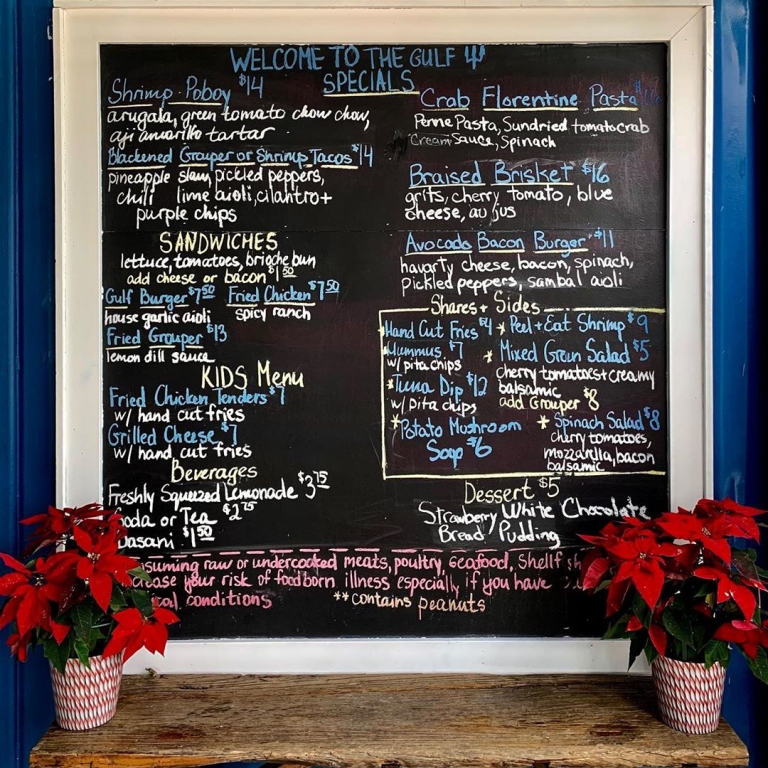 WELCOME TO THE GULF
SPECIALS
Shrimp Poboy $14
arugala, green tomato chow chow,
aji amarillo tartar
Blackened Grouper or Shrimp Tacos $14
pineapple slaw, pickled peppers,
chili lime aioli, cilantro +
purple chips
SANDWICHES
lettuce, tomatoes, brioche bun
add cheese or bacon $1.50
Gulf Burger $7.50 Fried Chicken $7.50
house garlic aioli spicy ranch
Fried Grouper $13
lemon dill sauce
KIDS Menu
Fried Chicken Tenders $7
w/ hand cut fries
Grilled Cheese $7
w/ hand cut fries
Beverages
Freshly Squeezed Lemonade $3.75
Soda or Tea $2.75
Dasani $1.50
Crab Florentine Pasta
Penne Pasta, Sundried tomato crab
Cream Sauce, Spinach
Braised Brisket $16
grits, cherry tomato, blue
cheese, au jus
Avocado Bacon Burger $11
havarty cheese, bacon, spinach,
Pickled peppers, sambal aioli
Shares + Sides
Hand Cut Fries $4
Hummus $7
w/ pita chips
*Tuna Dip $12
w/ pita chips
*Potato Mushroom
Soup $6
* Peel + Eat Shrimp $9
* Mixed Green Salad $5
cherry tomatoes + creamy
balsamic
add Grouper $8
* Spinach Salad $8
cherry tomatoes,
mozzarella, bacon
balsamic
Dessert $5
Strawberry White Chocolate
Bread Pudding
raw or undercooked meats, poultry, seafood,
your risk of foodborn illness especially if you have
conditions **contains peanuts